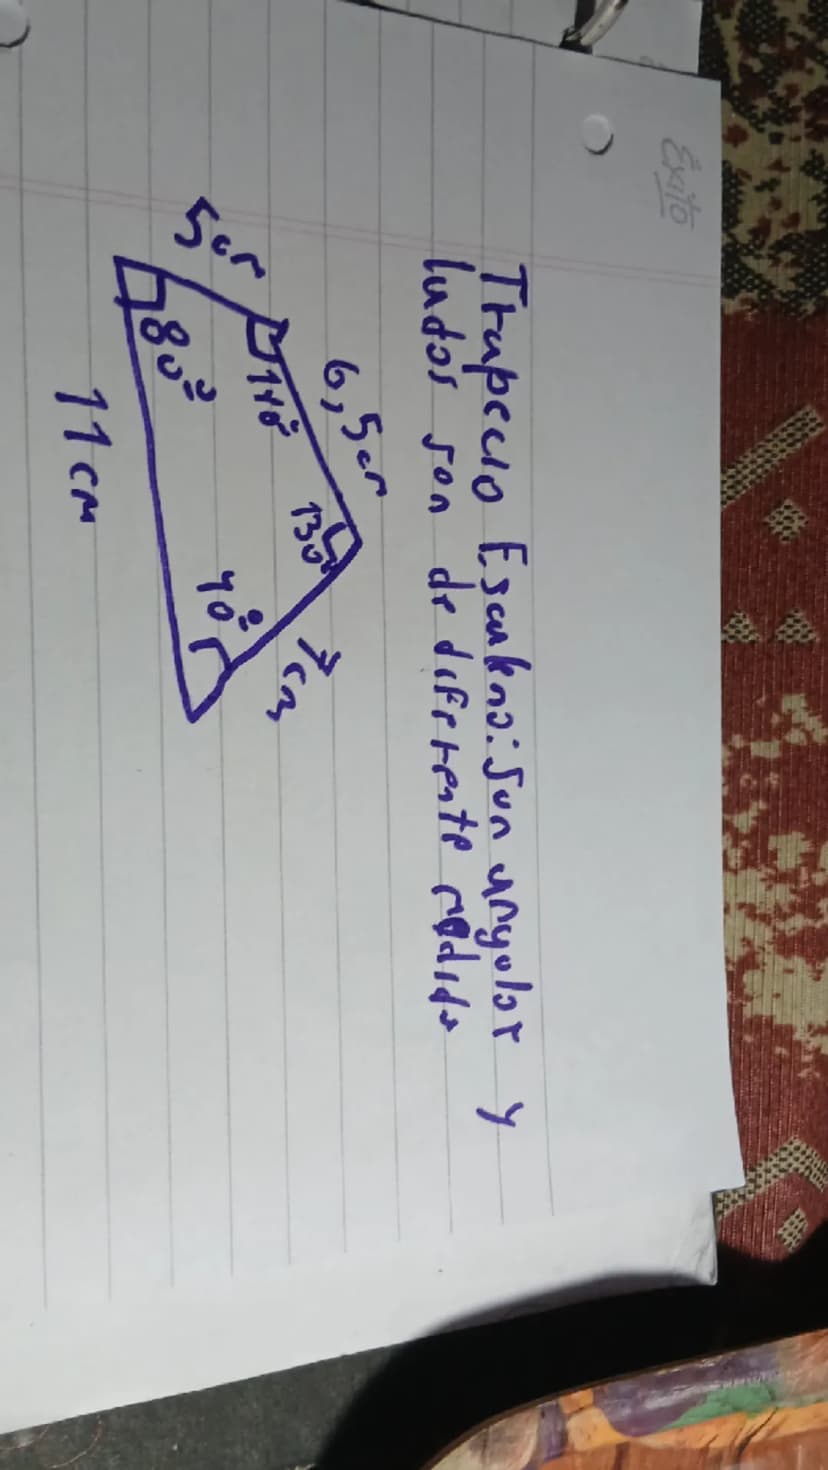 Éxito
Trapecio Escaleno: Son angolos y
lados son de diferente medida
6,5cm
5cm
110°
130°
7cm
80°
40°
11cm